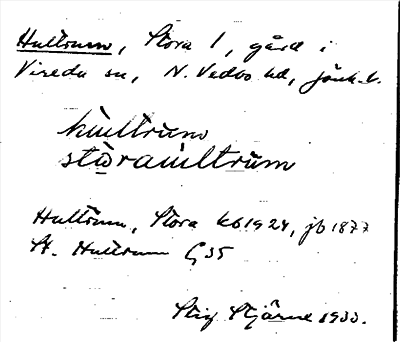 Hultrum, Stora 1, gård i
Vireda sn, N. Vedbo hd, Jönk. l.
hùltrum
stωraùltrùm
Hultrum, Stora kb 1924, jb 1877
St. Hultrum G 35
Stig Stjärne 1933.